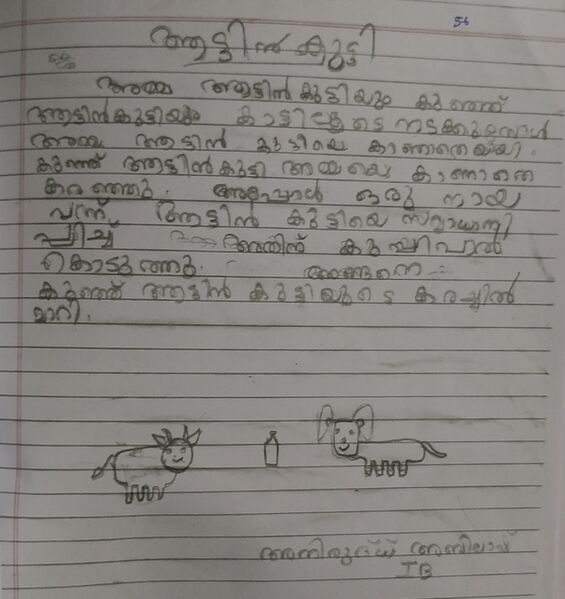 56
ആട്ടിൻ കുട്ടി
അമ്മ ആട്ടിൻകുട്ടിയും കുഞ്ഞ്
ആട്ടിൻകുട്ടിയും കാട്ടിലൂടെ നടക്കുമ്പോൾ
അമ്മ ആട്ടിൻ കുട്ടിയെ കാണാതെയായി.
കുഞ്ഞ് ആട്ടിൻകുട്ടി അമ്മയെ കാണാതെ
കരഞ്ഞു. അപ്പോൾ ഒരു നായ
വന്ന് ആട്ടിൻ കുട്ടിയെ സമാധാനി
പ്പിച്ച് അതിന് കുപ്പിപാൽ
കൊടുത്തു. അങ്ങനെ
കുഞ്ഞ് ആട്ടിൻ കുട്ടിയുടെ കരച്ചിൽ
മാറി.
അനിരുദ്ധ് അഭിലാഷ്
I B